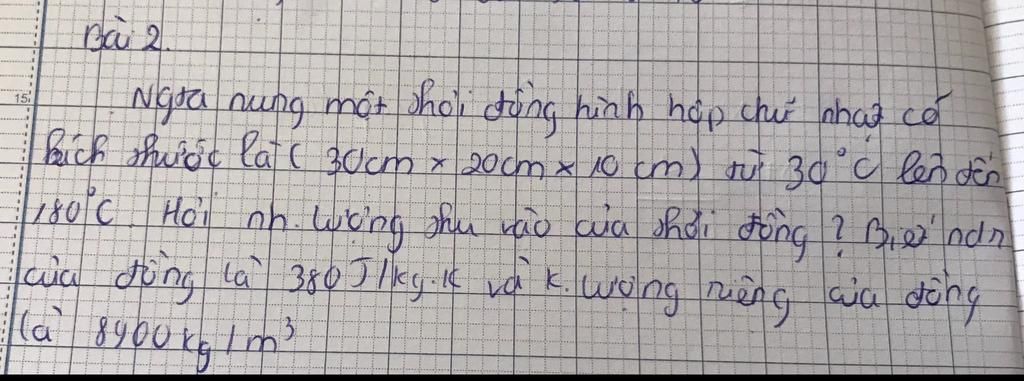 Bài 2.
15
Người nung một thỏi đồng hình hộp chữ nhật có
kích thước là ( 30cm × 20cm × 10 cm) từ 30°C lên đến
180°C. Hỏi nh. lượng thu vào của thỏi đồng ? Biết ndr
của đồng là 380 J/kg.K và k. lượng riêng của đồng
là 8900kg/m³